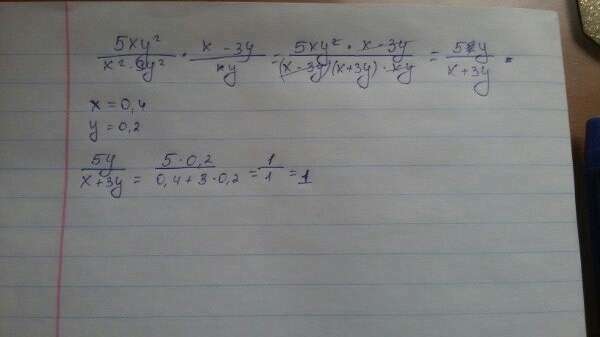 5xy² / x² · 9y² · x - 3y / xy = 5xy² · x - 3y / (x - 3y)(x+3y) · xy = 5y / x+3y .
x = 0,4
y = 0,2
5y / x+3y = 5·0,2 / 0,4+3·0,2 = 1 / 1 = 1